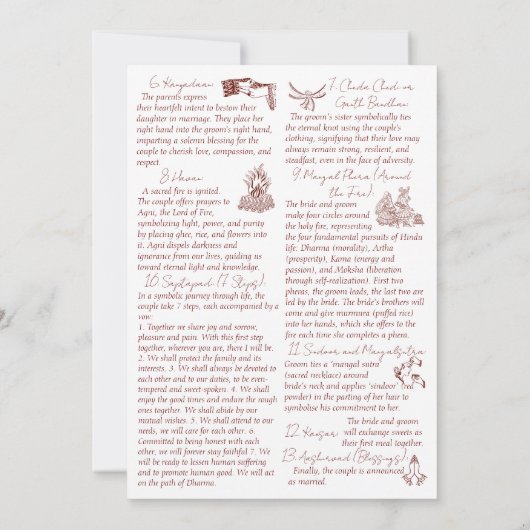 6. Kanyadaan:
The parents express
their heartfelt intent to bestow their
daughter in marriage. They place her
right hand into the groom's right hand,
imparting a solemn blessing for the
couple to cherish love, compassion, and
respect.
8. Havan:
A sacred fire is ignited.
The couple offers prayers to
Agni, the Lord of Fire,
symbolizing light, power, and purity
by placing ghee, rice, and flowers into
it. Agni dispels darkness and
ignorance from our lives, guiding us
toward eternal light and knowledge.
10. Saptapadi: (7 Steps):
In a symbolic journey through life, the
couple take 7 steps, each accompanied by a
vow:
1. Together we share joy and sorrow,
pleasure and pain. With this first step
together, wherever you are, there I will be.
2. We shall protect the family and its
interests. 3. We shall always be devoted to
each other and to our duties, to be even-
tempered and sweet-spoken. 4. We shall
enjoy the good times and endure the rough
ones together. We shall abide by our
mutual wishes. 5. We shall attend to our
needs, we will care for each other. 6.
Committed to being honest with each
other, we will forever stay faithful 7. We
will be ready to lessen human suffering
and to promote human good. We will act
on the path of Dharma.
7. Cheda Chedi or
Granth Bandhan:
The groom's sister symbolically ties
the eternal knot using the couple's
clothing, signifying that their love may
always remain strong, resilient, and
steadfast, even in the face of adversity.
9. Mangal Phera (Around
the Fire):
The bride and groom
make four circles around
the holy fire, representing
the four fundamental pursuits of Hindu
life: Dharma (morality), Artha
(prosperity), Kama (energy and
passion), and Moksha (liberation
through self-realization). First two
pheras, the groom leads, the last two are
led by the bride. The bride's brothers will
come and give murmura (puffed rice)
into her hands, which she offers to the
fire each time she completes a phera.
11. Sindoor and Mangalsutra:
Groom ties a 'mangal sutra'
(sacred necklace) around
bride's neck and applies 'sindoor' (red
powder) in the parting of her hair to
symbolise his commitment to her.
12. Kansar:
The bride and groom
will exchange sweets as
their first meal together.
13. Aashirvad (Blessings):
Finally, the couple is announced
as married.